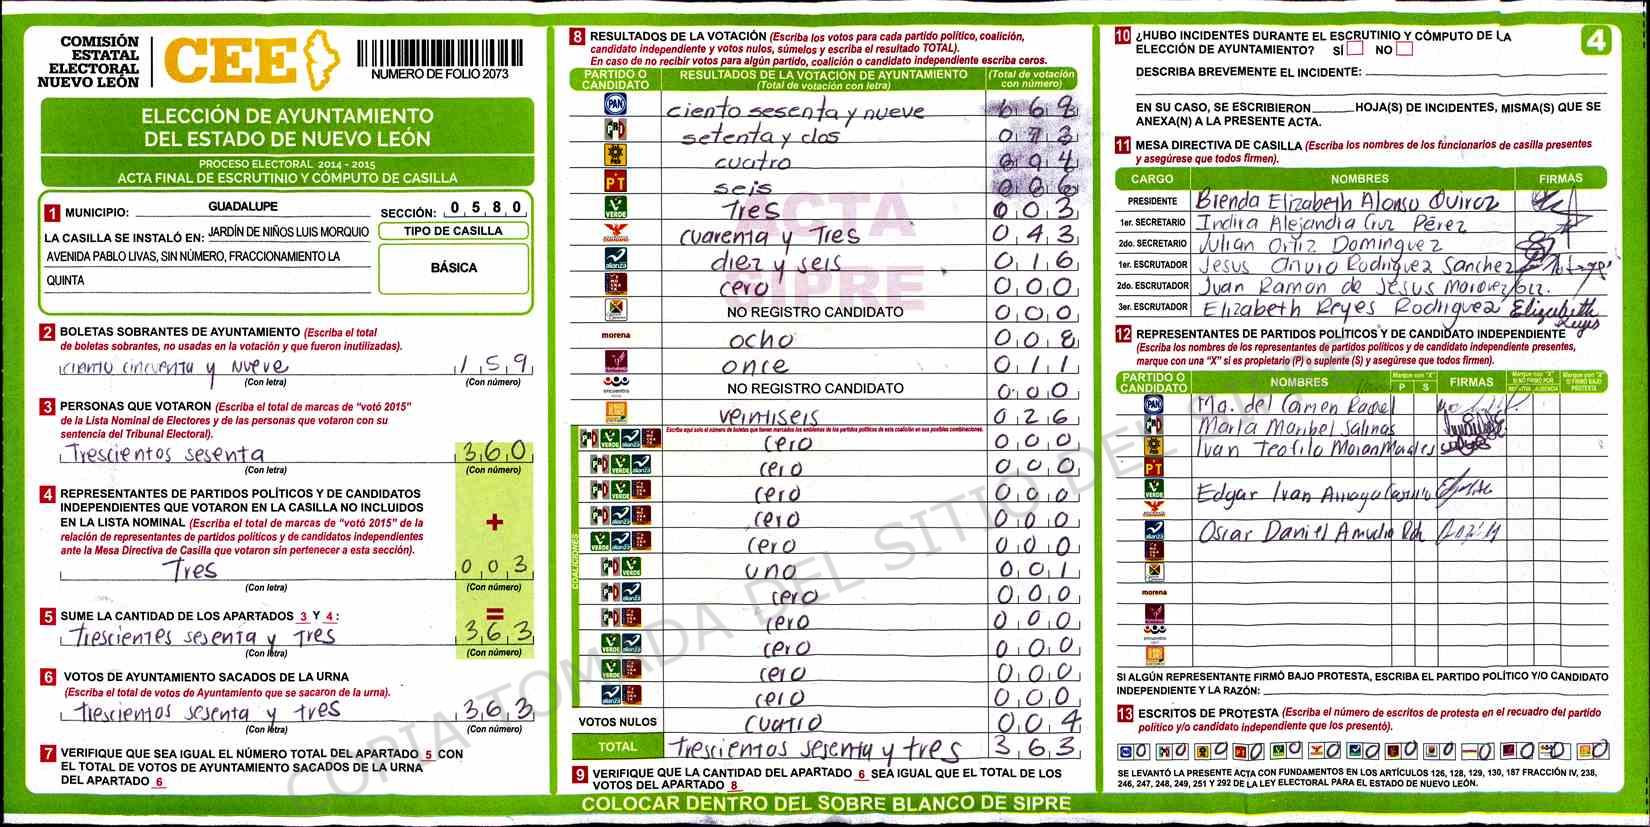 COMISIÓN
ESTATAL
ELECTORAL
NUEVO LEÓN
CEE
NUMERO DE FOLIO 2073
ELECCIÓN DE AYUNTAMIENTO
DEL ESTADO DE NUEVO LEÓN
PROCESO ELECTORAL 2014 - 2015
ACTA FINAL DE ESCRUTINIO Y CÓMPUTO DE CASILLA
1 MUNICIPIO: GUADALUPE SECCIÓN: 0 5 8 0
LA CASILLA SE INSTALÓ EN: JARDÍN DE NIÑOS LUIS MORQUIO
AVENIDA PABLO LIVAS, SIN NÚMERO, FRACCIONAMIENTO LA
QUINTA
TIPO DE CASILLA
BÁSICA
2 BOLETAS SOBRANTES DE AYUNTAMIENTO (Escriba el total
de boletas sobrantes, no usadas en la votación y que fueron inutilizadas).
ciento cincuenta y nueve 1 5 9
(Con letra) (Con número)
3 PERSONAS QUE VOTARON (Escriba el total de marcas de "votó 2015"
de la Lista Nominal de Electores y de las personas que votaron con su
sentencia del Tribunal Electoral).
Trescientos sesenta 3 6 0
(Con letra) (Con número)
4 REPRESENTANTES DE PARTIDOS POLÍTICOS Y DE CANDIDATOS
INDEPENDIENTES QUE VOTARON EN LA CASILLA NO INCLUIDOS
EN LA LISTA NOMINAL (Escriba el total de marcas de "votó 2015" de la
relación de representantes de partidos políticos y de candidatos independientes
ante la Mesa Directiva de Casilla que votaron sin pertenecer a esta sección).
+
Tres 0 0 3
(Con letra) (Con número)
=
5 SUME LA CANTIDAD DE LOS APARTADOS 3 Y 4:
Trescientos sesenta y Tres 3 6 3
(Con letra) (Con número)
6 VOTOS DE AYUNTAMIENTO SACADOS DE LA URNA
(Escriba el total de votos de Ayuntamiento que se sacaron de la urna).
Trescientos sesenta y tres 3 6 3
(Con letra) (Con número)
7 VERIFIQUE QUE SEA IGUAL EL NÚMERO TOTAL DEL APARTADO 5 CON
EL TOTAL DE VOTOS DE AYUNTAMIENTO SACADOS DE LA URNA
DEL APARTADO 6
8 RESULTADOS DE LA VOTACIÓN (Escriba los votos para cada partido político, coalición,
candidato independiente y votos nulos, súmelos y escriba el resultado TOTAL).
En caso de no recibir votos para algún partido, coalición o candidato independiente escriba ceros.
PARTIDO O CANDIDATO RESULTADOS DE LA VOTACIÓN DE AYUNTAMIENTO (Total de votación con letra) (Total de votación con número)
PAN ciento sesenta y nueve
setenta y dos 0 7 3
PRD cuatro
PT seis
VERDE Tres 0 0 3
cuarenta y Tres 0 4 3
alianza diez y seis 0 1 6
cero 0 0 0
NO REGISTRO CANDIDATO 0 0 0
morena ocho 0 0 8
once 0 1 1
encuentro NO REGISTRO CANDIDATO 0 0 0
veintiseis 0 2 6
Escriba aquí solo el número de boletas que tienen marcados los emblemas de los partidos políticos de esta coalición en sus posibles combinaciones.
COALICIONES
VERDE alianza cero 0 0 0
VERDE alianza cero 0 0 0
VERDE cero 0 0 0
alianza cero 0 0 0
VERDE alianza cero 0 0 0
VERDE uno 0 0 1
alianza cero 0 0 0
cero 0 0 0
VERDE alianza cero 0 0 0
VERDE cero 0 0 0
alianza cero 0 0 0
VOTOS NULOS cuatro 0 0 4
TOTAL trescientos sesenta y tres 3 6 3
ACTA
SIPRE
9 VERIFIQUE QUE LA CANTIDAD DEL APARTADO 6 SEA IGUAL QUE EL TOTAL DE LOS
VOTOS DEL APARTADO 8
COLOCAR DENTRO DEL SOBRE BLANCO DE SIPRE
10 ¿HUBO INCIDENTES DURANTE EL ESCRUTINIO Y CÓMPUTO DE LA
ELECCIÓN DE AYUNTAMIENTO? SÍ NO
4
DESCRIBA BREVEMENTE EL INCIDENTE:
EN SU CASO, SE ESCRIBIERON HOJA(S) DE INCIDENTES, MISMA(S) QUE SE
ANEXA(N) A LA PRESENTE ACTA.
11 MESA DIRECTIVA DE CASILLA (Escriba los nombres de los funcionarios de casilla presentes
y asegúrese que todos firmen).
CARGO NOMBRES FIRMAS
PRESIDENTE Brenda Elizabeth Alonso Quiroz
1er. SECRETARIO Indira Alejandra Cruz Pérez
2do. SECRETARIO Julian Ortiz Dominguez
1er. ESCRUTADOR Jesus Arturo Rodriguez Sanchez
2do. ESCRUTADOR Juan Ramon de Jesus
3er. ESCRUTADOR Elizabeth Reyes Rodriguez Elizabeth Reyes
12 REPRESENTANTES DE PARTIDOS POLÍTICOS Y DE CANDIDATO INDEPENDIENTE
(Escriba los nombres de los representantes de partidos políticos y de candidato independiente presentes,
marque con una "X" si es propietario (P) o suplente (S) y asegúrese que todos firmen).
PARTIDO O CANDIDATO NOMBRES Marque con "X" P S FIRMAS
PAN Ma. del Carmen
Maria Maribel Salinas
PRD Ivan Teofilo Moran Morales
PT
VERDE Edgar Ivan
alianza Oscar Daniel
morena
encuentro
SI ALGÚN REPRESENTANTE FIRMÓ BAJO PROTESTA, ESCRIBA EL PARTIDO POLÍTICO Y/O CANDIDATO
INDEPENDIENTE Y LA RAZÓN:
13 ESCRITOS DE PROTESTA (Escriba el número de escritos de protesta en el recuadro del partido
político y/o candidato independiente que los presentó).
0 0 0 0 0 0 0 0 0 0 0 0 0
SE LEVANTÓ LA PRESENTE ACTA CON FUNDAMENTOS EN LOS ARTÍCULOS 126, 128, 129, 130, 187 FRACCIÓN IV, 238,
246, 247, 248, 249, 251 Y 292 DE LA LEY ELECTORAL PARA EL ESTADO DE NUEVO LEÓN.
COPIA TOMADA DEL SITIO DEL SIPRE